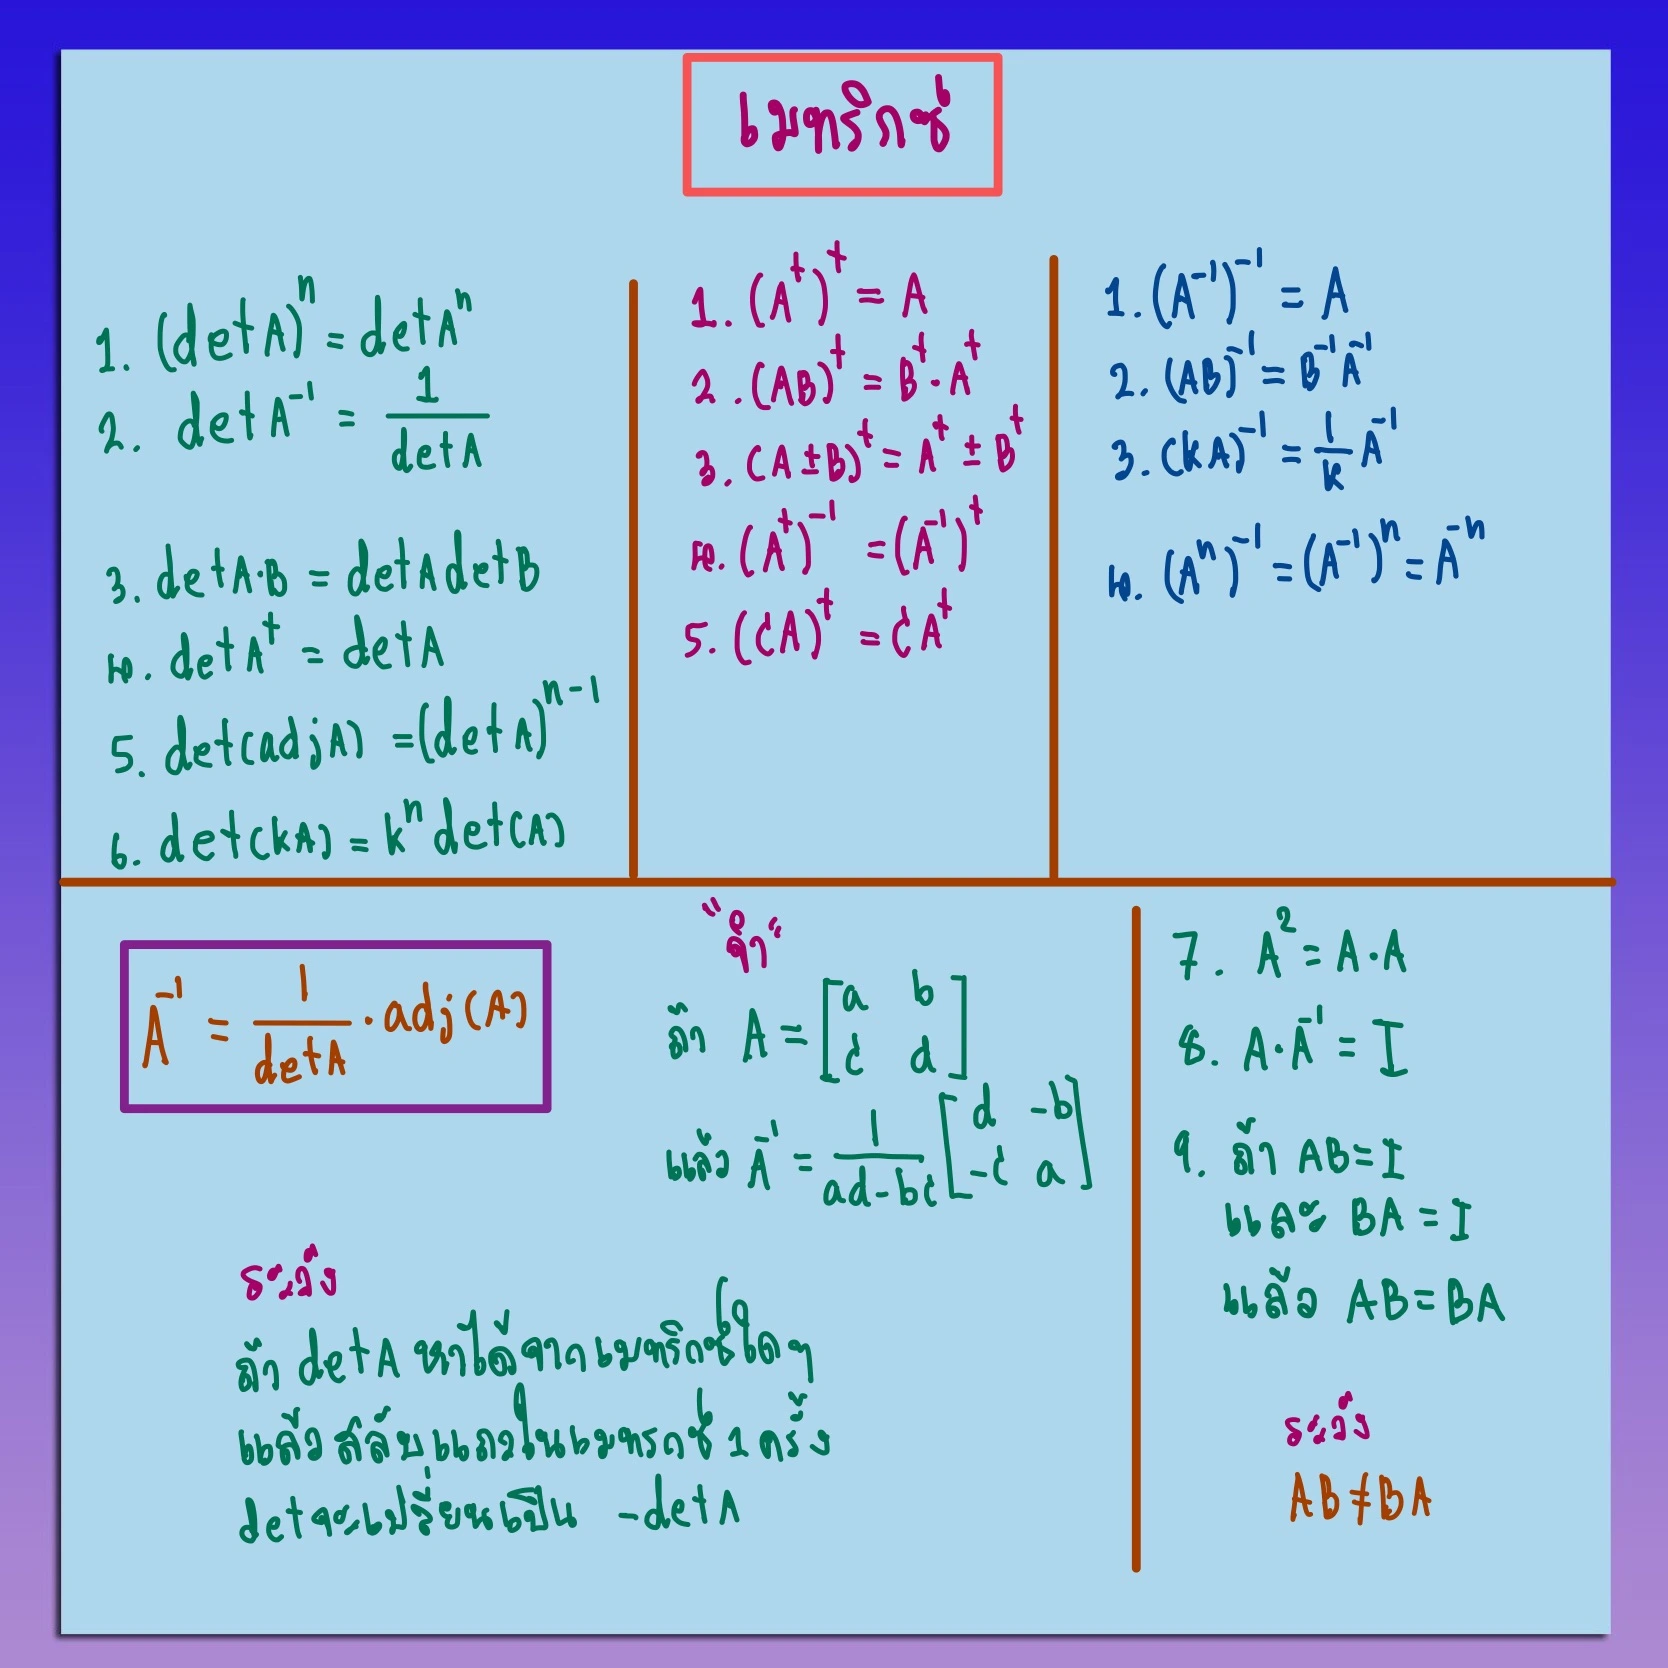 เมทริกซ์
1. (detA)ⁿ = detAⁿ
2. detA⁻¹ = 1/detA
3. detA·B = detAdetB
๔. detAᵗ = detA
5. det(adjA) = (detA)ⁿ⁻¹
6. det(kA) = kⁿdet(A)
1. (Aᵗ)ᵗ = A
2. (AB)ᵗ = Bᵗ·Aᵗ
3. (A±B)ᵗ = Aᵗ ± Bᵗ
๔. (Aᵗ)⁻¹ = (A⁻¹)ᵗ
5. (cA)ᵗ = cAᵗ
1. (A⁻¹)⁻¹ = A
2. (AB)⁻¹ = B⁻¹A⁻¹
3. (kA)⁻¹ = 1/k A⁻¹
๔. (Aⁿ)⁻¹ = (A⁻¹)ⁿ = A⁻ⁿ
A⁻¹ = 1/detA · adj(A)
"จำ"
ถ้า A = [a b
c d]
แล้ว A⁻¹ = 1/ad-bc [d -b
-c a]
ระวัง
ถ้า detA หาได้จากเมทริกซ์ใดๆ
แล้วสลับแถวในเมทรกซ์ 1 ครั้ง
detจะเปลี่ยนเป็น -detA
7. A² = A·A
8. A·A⁻¹ = I
9. ถ้า AB=I
และ BA=I
แล้ว AB=BA
ระวัง
AB≠BA